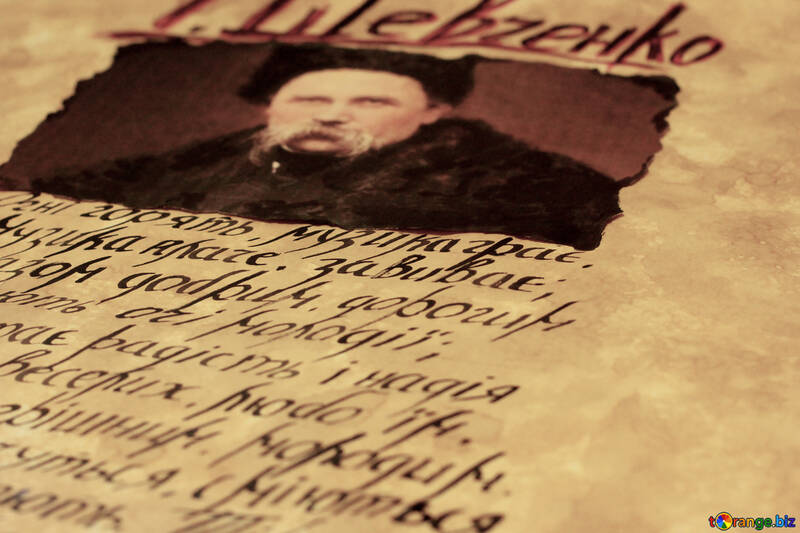 Т. Шевченко
горять, музика грає.
Музика плаче. завиває;
зом добрим. дорогим
ють очі молодії;
ає радість і надія
веселих. любо їм.
рішним. молодим.
уться. сміються
ють.
torange.biz